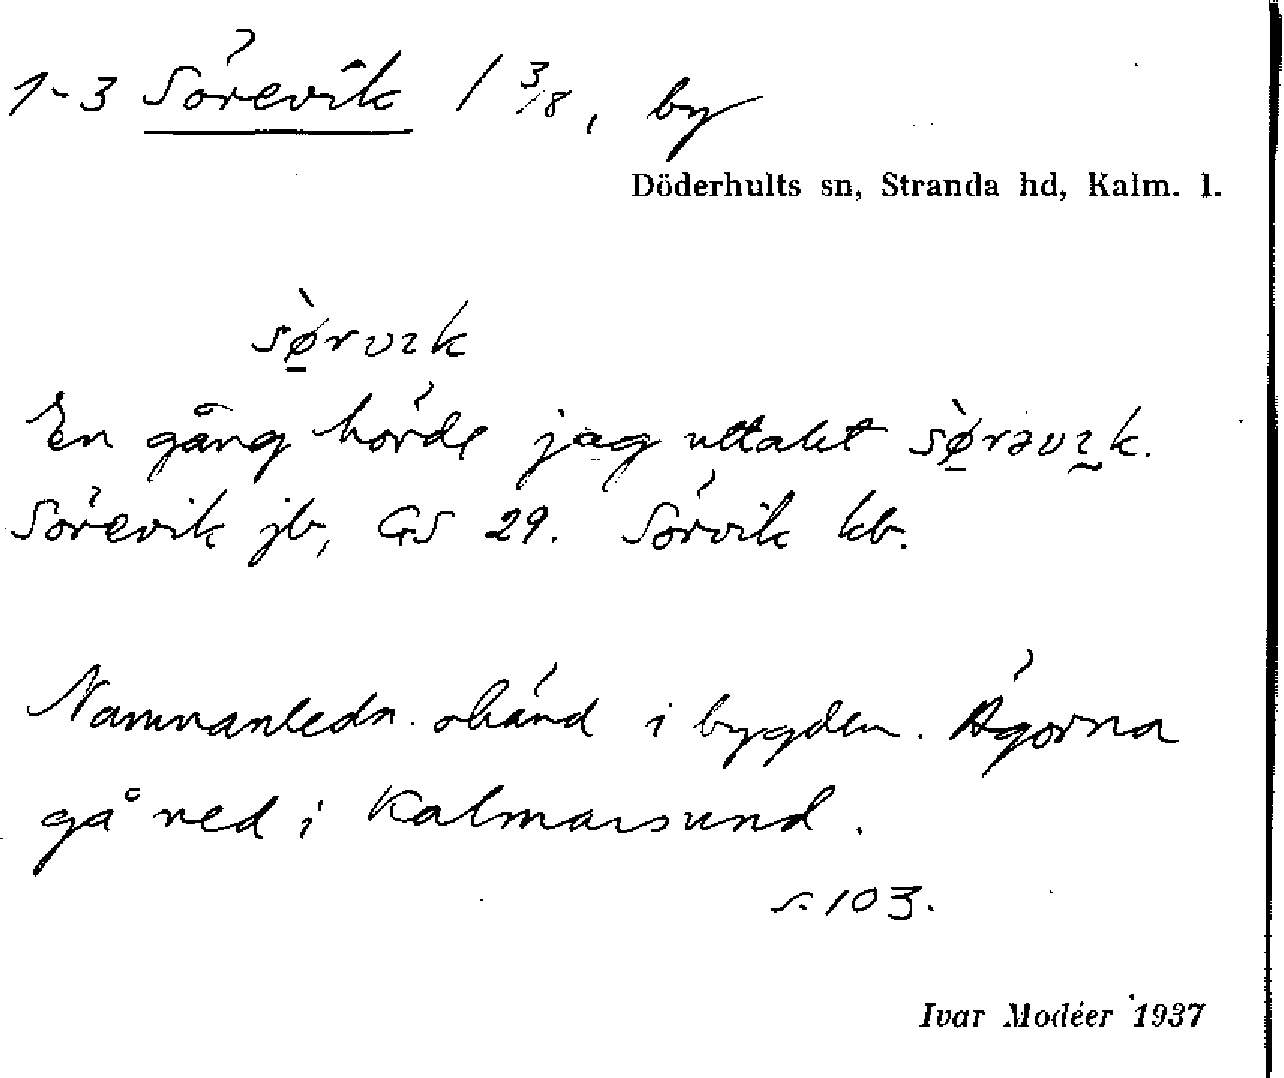 1-3 Sörevik 1 3/8, by
Döderhults sn, Stranda hd, Kalm. l.
sø̀rvɪk
En gång hörde jag uttalet sø̀rəvɪk.
Sörevik jb, GS 29. Sörvik kb.
Namnanledn. okänd i bygden. Ägorna
gå ned i Kalmarsund.
s. 103.
Ivar Modéer 1937